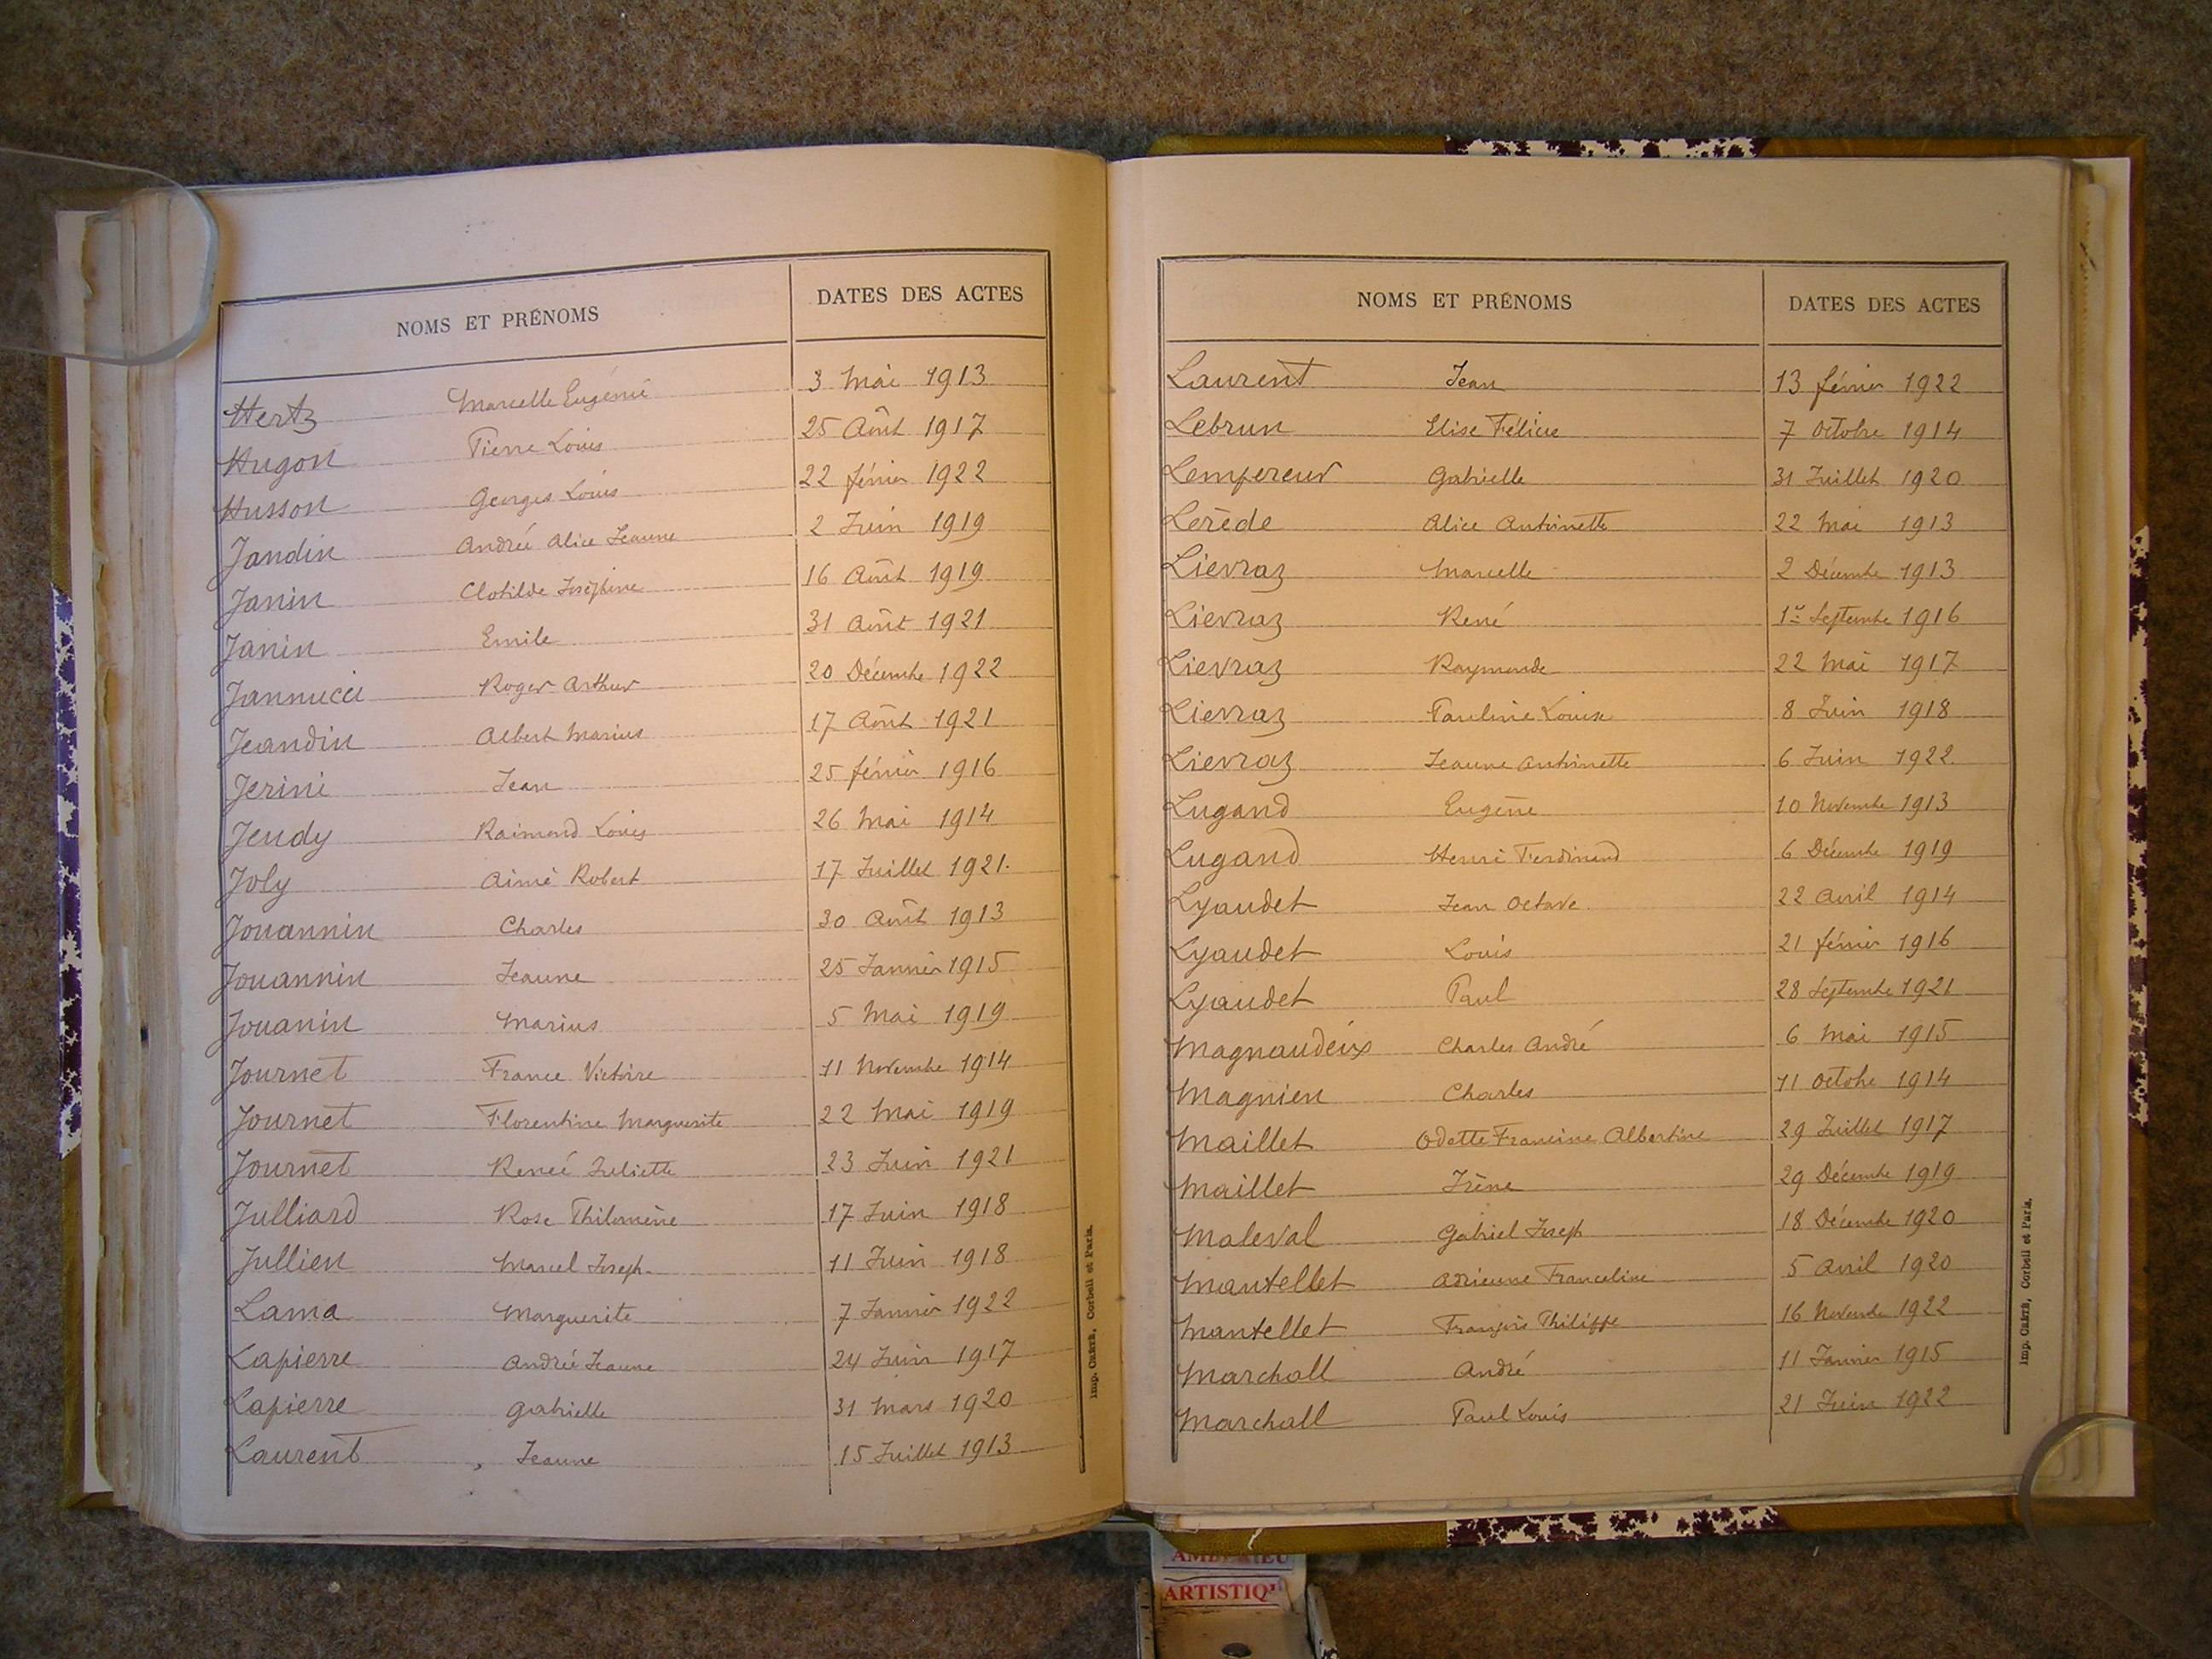 NOMS ET PRÉNOMS DATES DES ACTES
Hertz Marcelle Eugénie 3 Mai 1913
Hugon Pierre Louis 25 Août 1917
Husson Georges Louis 22 février 1922
Jandin Andrée Alice Jeanne 2 Juin 1919
Janin Clotilde Joséphine 16 Août 1919
Janin Emile 31 Août 1921
Jannucci Roger Arthur 20 Décembre 1922
Jeandin Albert Marius 17 Août 1921
Jerini Jean 25 février 1916
Jeudy Raimond Louis 26 Mai 1914
Joly Aimé Robert 17 Juillet 1921.
Jouannin Charles 30 Août 1913
Jouannin Jeanne 25 Janvier 1915
Jouanin Marius 5 Mai 1919
Journet France Victoire 11 Novembre 1914
Journet Florentine Marguerite 22 Mai 1919
Journet Reneé Juliette 23 Juin 1921
Julliard Rose Philomène 17 Juin 1918
Jullien Marcel Joseph 11 Juin 1918
Lama Marguerite 7 Janvier 1922
Lapierre Andrée Jeanne 24 Juin 1917
Lapierre Gabrielle 31 Mars 1920
Laurent Jeanne 15 Juillet 1913
Imp. Crété, Corbeil et Paris.
NOMS ET PRÉNOMS DATES DES ACTES
Laurent Jean 13 février 1922
Lebrun Elise Félicie 7 Octobre 1914
Lempereur Gabrielle 31 Juillet 1920
Lerède Alice Antoinette 22 Mai 1913
Lievraz Marcelle 2 Décembre 1913
Lievraz René 1er Septembre 1916
Lievraz Raymonde 22 Mai 1917
Lievraz Pauline Louise 8 Juin 1918
Lievraz Jeanne Antoinette 6 Juin 1922
Lugand Eugène 10 Novembre 1913
Lugand Henri Ferdinand 6 Décembre 1919
Lyaudet Jean Octave 22 Avril 1914
Lyaudet Louis 21 février 1916
Lyaudet Paul 28 Septembre 1921
Magnaudeix Charles André 6 Mai 1915
Magnien Charles 11 Octobre 1914
Maillet Odette Francine Albertine 29 Juillet 1917
Maillet Irène 29 Décembre 1919
Maleval Gabriel Joseph 18 Décembre 1920
Mantellet Adrienne Franceline 5 Avril 1920
Mantellet François Philippe 16 Novembre 1922
Marchall André 11 Janvier 1915
Marchall Paul Louis 21 Juin 1922
Imp. Crété, Corbeil et Paris.
ARTISTIQ